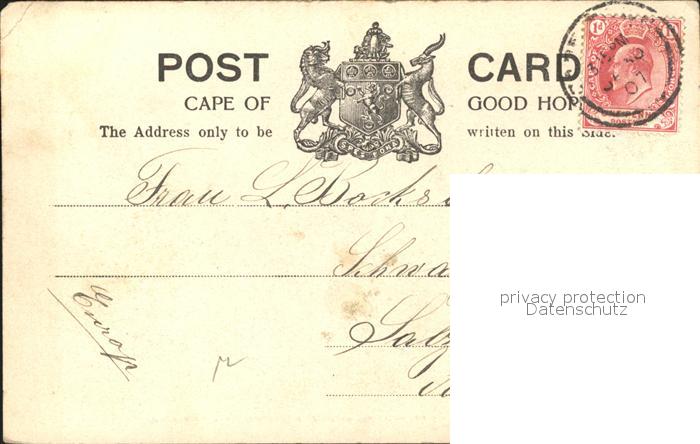 POST CARD
CAPE OF GOOD HOP
The Address only to be written on this Side.
SPES BONA
1d
Frau L. Bocks
Schwa
Salz
Europ
privacy protection
Datenschutz